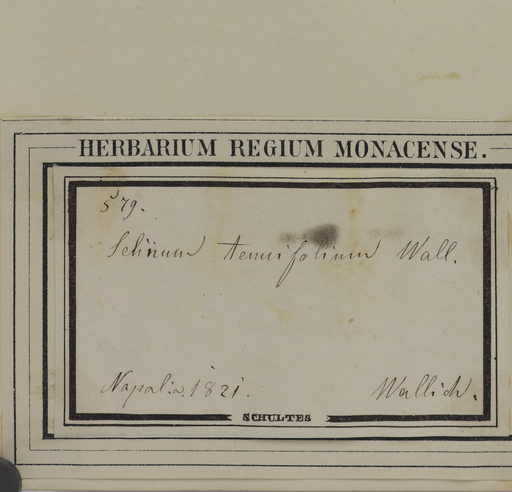 HERBARIUM REGIUM MONACENSE.
579.
Selinum tenuifolium Wall.
Napalia. 1821. Wallich.
SCHULTES